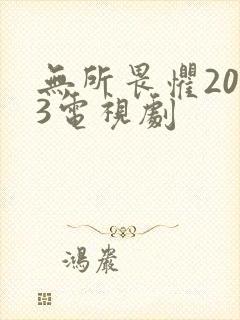 無所畏懼20
3電視劇
鴻嚴